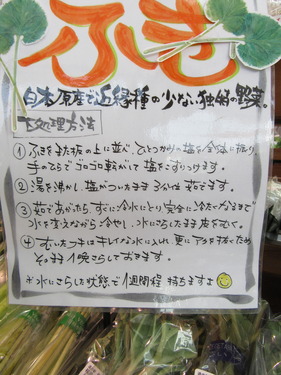 ふき
日本原産で近縁種の少ない独特の野菜。
下処理方法
① ふきをまな板の上に並べ、ひとつかみの塩を全体に振り
手のひらでゴロゴロ転がして塩をこすりつけます。
② 湯を沸かし、塩がついたまま3分ほど茹でます。
③ 茹であがたら、すぐに冷水にとり完全に冷たくなるまで
水を変えながら冷やし、水にさらしたまま皮をむく。
④ むいたフキはキレイな水に入れ、更にアクを抜くため
そのまま1晩さらしておきます。
※水にさらした状態で1週間程持ちますよ